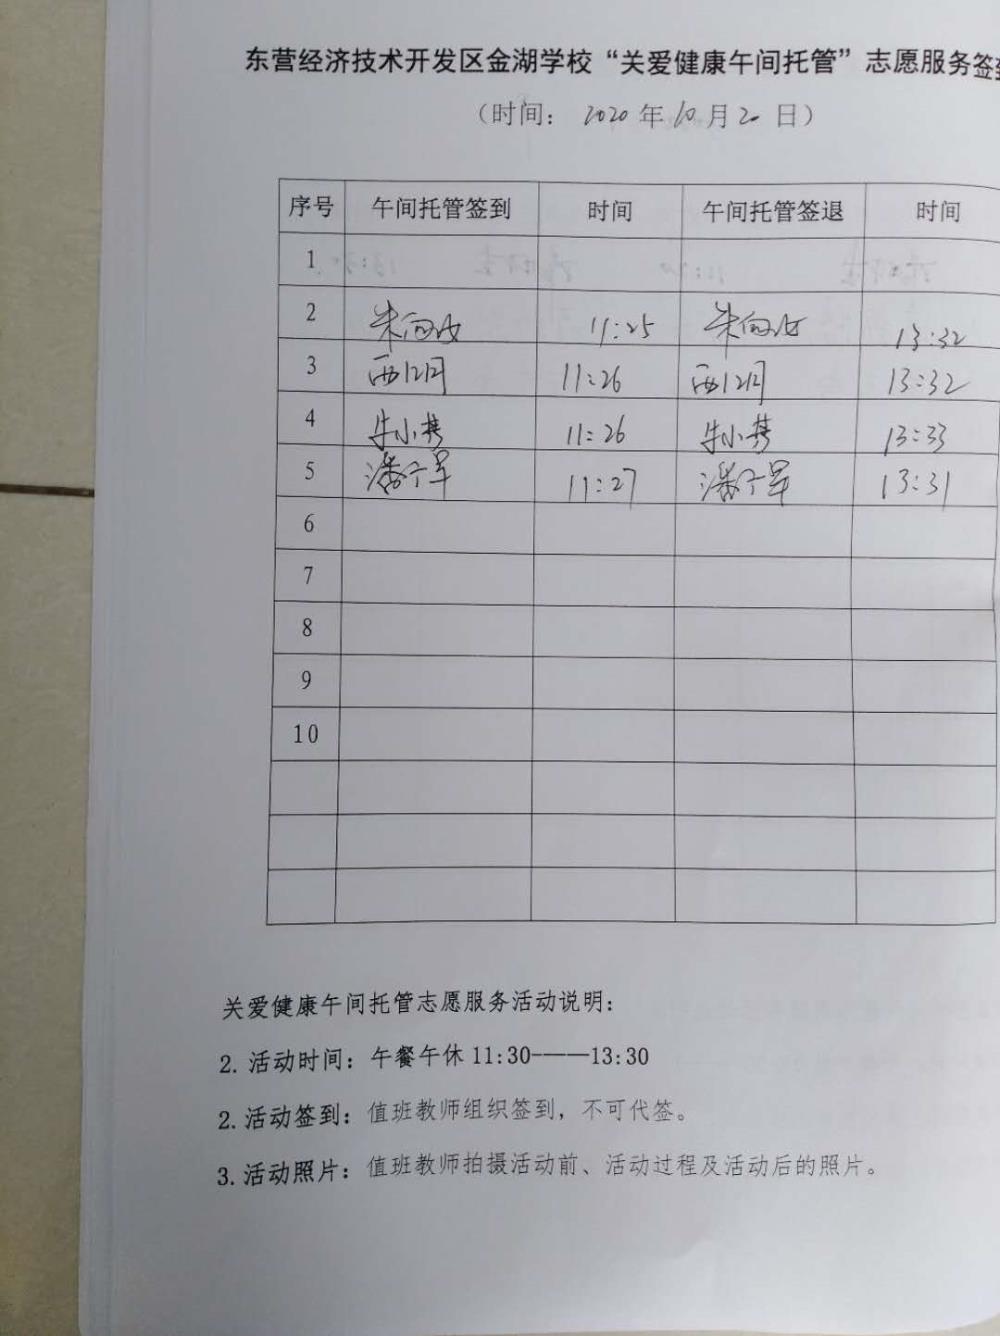 东营经济技术开发区金湖学校“关爱健康午间托管”志愿服务签到
（时间： 2020 年 10 月 20 日）
序号 午间托管签到 时间 午间托管签退 时间
1
2 朱向 11:25 朱向 13:32
3 11:26 13:32
4 朱小 11:26 朱小 13:33
5 潘子军 11:27 潘子军 13:31
6
7
8
9
10
关爱健康午间托管志愿服务活动说明：
2. 活动时间：午餐午休 11:30——13:30
2. 活动签到：值班教师组织签到，不可代签。
3. 活动照片：值班教师拍摄活动前、活动过程及活动后的照片。